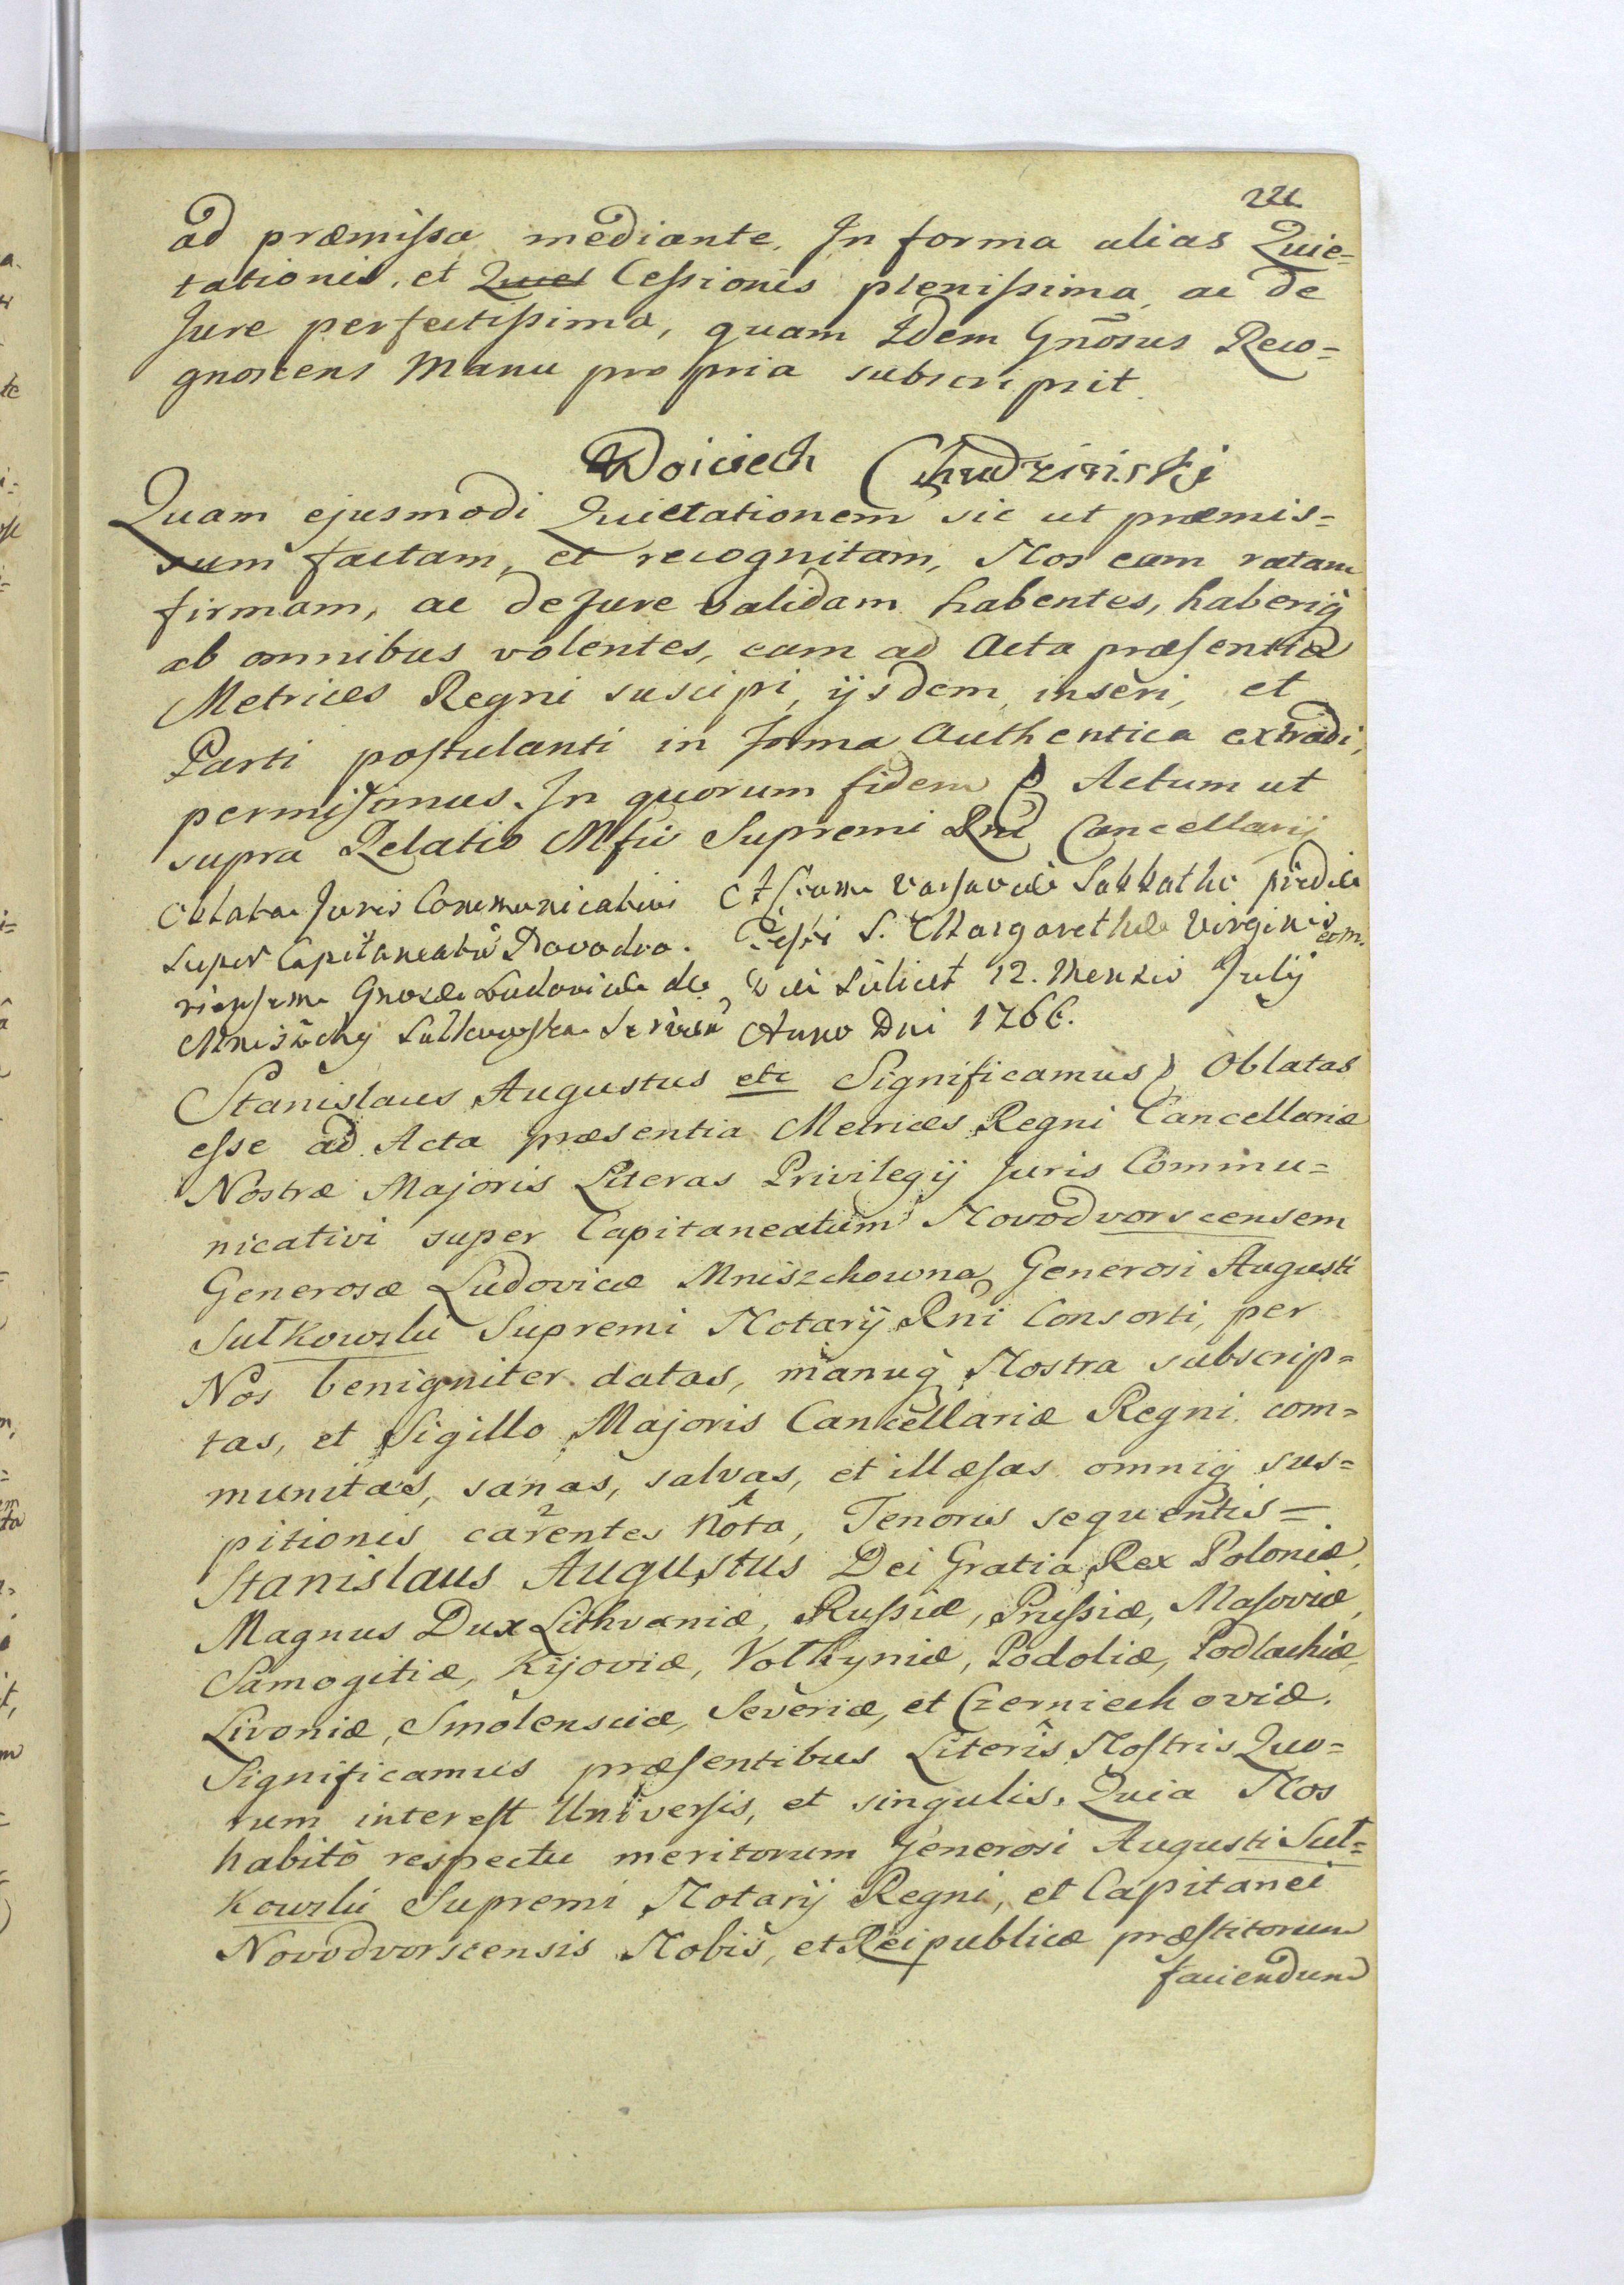 221
ad præmissa mediante. In forma alias Quie=
tationis, et Quiet Cessionis plenissima, ac de
Jure perfectissima, quam Idem Gnosus Reco=
gnoscens Manu propria subscripsit.
Woiciech Chudzinskj
Quam ejusmodi Quietationem sic ut præmis=
sum factam, et recognitam, Nos eam ratam
firmam, ac de Jure validam habentes, haberiq̃
ab omnibus volentes, eam ad Acta præsentia
Metrices Regni suscipi, ijsdem inseri, et
Parti postulanti in forma Authentica extradi,
permisimus. In quorum fidem Actum ut
supra Relatio Mfici Supremi Rni Cancellarij
Oblata Juris Communicativi
super Capitaneatũ Novodvo.
riensem Gnosæ Ludovicæ de
Mniszchy Sułkowska Servien
Actum Varsaviæ Sabbatho pridie
Festi S. Margarethæ Virginis
Die scilicet 12. Mensis Julij
Anno Dni 1766.
Stanislaus Augustus etc Significamus Oblatas
esse ad Acta præsentia Metrices Regni Cancellariæ
Nostræ Majoris Literas Privilegij Juris Commu=
nicativi super Capitaneatum Novodvorscensem
Generosæ Ludovicæ Mniszchowna Generosi Augusti
Sułkowski Supremi Notarij Rni Consorti, per
Nos benigniter datas, manuq̃ Nostra subscrip=
tas, et Sigillo Majoris Cancellariæ Regni com=
munitas, sanas, salvas, et illæsas omniq̃ sus=
pitionis carentes Nota, Tenoris sequentis =
Stanislaus Augustus Dei Gratia Rex Poloniæ,
Magnus Dux Lithvaniæ, Russiæ, Prussiæ, Masoviæ,
Samogitiæ, Kijoviæ, Volhyniæ, Podoliæ, Podlachiæ,
Livoniæ, Smolensciæ, Severiæ, et Czerniechoviæ.
Significamus præsentibus Literis Nostris Quo=
rum interest Universis, et singulis. Quia Nos
habito respectu meritorum Generosi Augusti Suł=
kowski Supremi Notarij Regni, et Capitanei
Novodvorscensis Nobis, et Reipublicæ præstitorum
faciendum